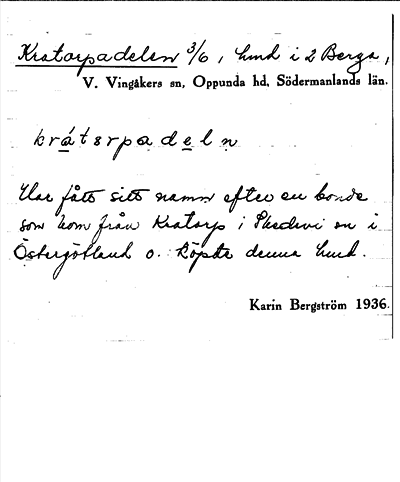 Kratorpadelen 3/6, hmd i 2 Berga,
V. Vingåkers sn, Oppunda hd, Södermanlands län.
krátsrpadeln
Har fått sitt namn efter en bonde
som kom från Kratorp i Skedevi sn i
Östergötland o. köpte denna hmd.
Karin Bergström 1936.